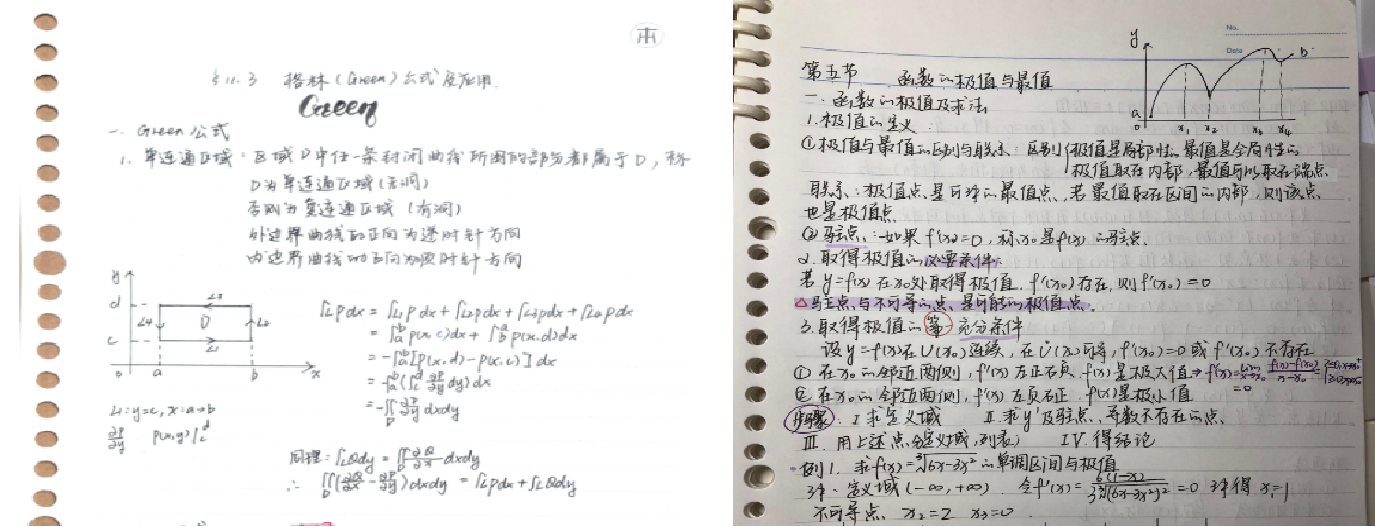 本
§11.3 格林(Green)公式及应用.
Green
一. Green公式
1. 单连通区域: 区域D中任一条封闭曲线所围的部分都属于D, 称
D为单连通区域(无洞)
否则为复连通区域(有洞)
外边界曲线的正向为逆时针方向
内边界曲线的正向为顺时针方向
y
d
c
o
a
b
x
L3
L4
D
L2
L1
∫L Pdx = ∫L1 Pdx + ∫L2 Pdx + ∫L3 Pdx + ∫L4 Pdx
= ∫_a^b P(x,c)dx + ∫_b^a P(x,d)dx
= -∫_a^b [P(x,d) - P(x,c)] dx
= -∫_a^b (∫_c^d ∂P/∂y dy) dx
= -∬_D ∂P/∂y dxdy
L1: y=c, x: a→b
∂P/∂y P(x,y)|_c^d
同理: ∫L Qdy = ∬_D ∂Q/∂x dxdy
∴ ∬_D (∂Q/∂x - ∂P/∂y) dxdy = ∫L Pdx + ∫L Qdy
No.
Date
y
a
b
o
x1 x2 x3 x4
第五节 函数的极值与最值
一. 函数的极值及求法
1. 极值的定义:
①极值与最值的区别与联系: 区别{极值是局部性的 最值是全局性的
极值取在内部, 最值可以取在端点.
联系: 极值点是可疑的最值点, 若最值取在区间的内部, 则该点
也是极值点.
②驻点: 如果f'(x0)=0, 称x0是f(x)的驻点.
2. 取得极值的必要条件:
若y=f(x)在x0处取得极值, f'(x0)存在, 则f'(x0)=0
△驻点与不可导的点是可能的极值点.
3. 取得极值的第一充分条件
设y=f(x)在U(x0)连续, 在Ů(x0)可导, f'(x0)=0或f'(x0)不存在
①在x0的邻近两侧, f'(x)左正右负, f(x)是极大值
=0
②在x0的邻近两侧, f'(x)左负右正, f(x)是极小值
步骤: I 求定义域 II. 求y'及驻点、导数不存在的点.
III. 用上述点分定义域, 列表) IV. 得结论
例1. 求f(x)=∛(6x-3x²)的单调区间与极值
解: 定义域(-∞, +∞). 令f'(x)= 6(1-x)/3∛(6x-3x²)² =0 解得 x1=1
不可导点. x2=2 x3=0